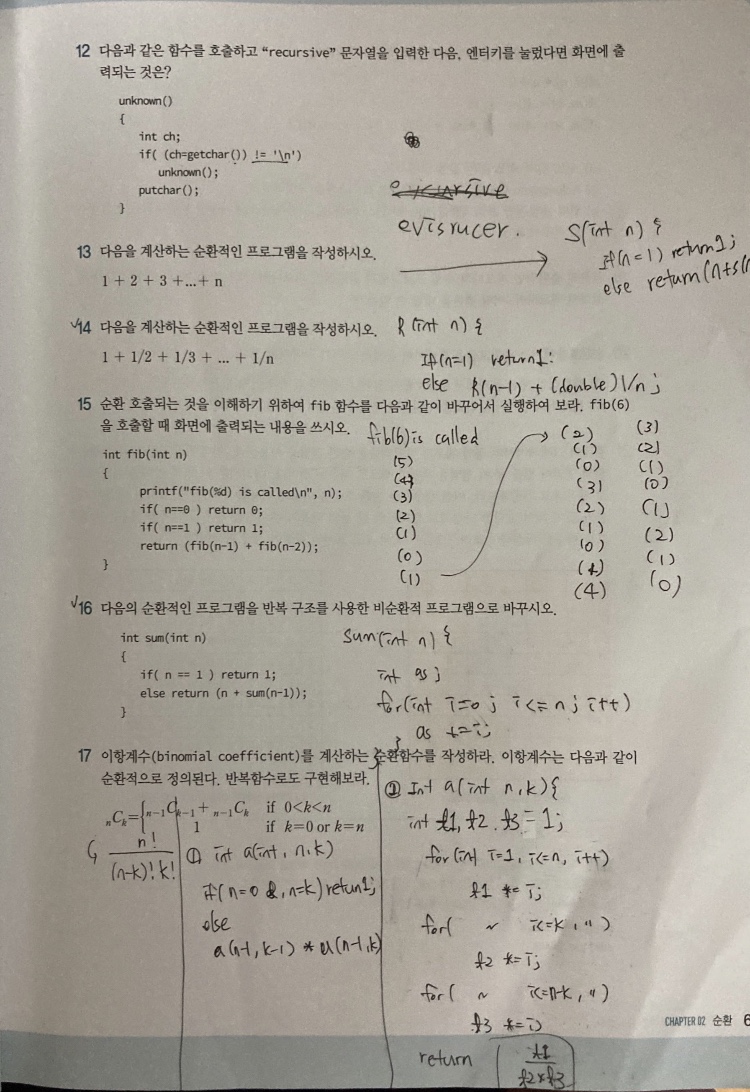 12 다음과 같은 함수를 호출하고 “recursive” 문자열을 입력한 다음, 엔터키를 눌렀다면 화면에 출
력되는 것은?
unknown()
{
int ch;
if( (ch=getchar()) != '\n')
unknown();
putchar();
}
evisrucer.
13 다음을 계산하는 순환적인 프로그램을 작성하시오.
1 + 2 + 3 +...+ n
S(int n) {
If(n=1) return 1;
else return(n+s(n
14 다음을 계산하는 순환적인 프로그램을 작성하시오.
1 + 1/2 + 1/3 + ... + 1/n
R(int n) {
If(n=1) return 1:
else R(n-1) + (double)1/n;
15 순환 호출되는 것을 이해하기 위하여 fib 함수를 다음과 같이 바꾸어서 실행하여 보라. fib(6)
을 호출할 때 화면에 출력되는 내용을 쓰시오.
int fib(int n)
{
printf("fib(%d) is called\n", n);
if( n==0 ) return 0;
if( n==1 ) return 1;
return (fib(n-1) + fib(n-2));
}
fib(6) is called
(5)
(4)
(3)
(2)
(1)
(0)
(1)
(2)
(1)
(0)
(3)
(2)
(1)
(0)
(4)
(3)
(2)
(1)
(0)
(1)
(2)
(1)
(0)
16 다음의 순환적인 프로그램을 반복 구조를 사용한 비순환적 프로그램으로 바꾸시오.
int sum(int n)
{
if( n == 1 ) return 1;
else return (n + sum(n-1));
}
Sum(int n) {
int as;
for(int i=0; i<=n; i++)
as += i;
}
17 이항계수(binomial coefficient)를 계산하는 순환함수를 작성하라. 이항계수는 다음과 같이
순환적으로 정의된다. 반복함수로도 구현해보라.
nCk={n-1Ck-1 + n-1Ck if 0<k<n
1 if k=0 or k=n
n!
(n-k)!k!
① int a(int, n, k)
if(n=0 &, n=k) retun 1;
else
a(n-1, k-1) * a(n-1, k)
② Int a(int n, k){
int f1, f2. f3 = 1;
for(int i=1, i<=n, i++)
f1 *= i;
for( ~ i<=k, ")
f2 *= i;
for( ~ i<=n-k, ")
f3 *= i)
return f1
f2*f3
CHAPTER 02 순환 6